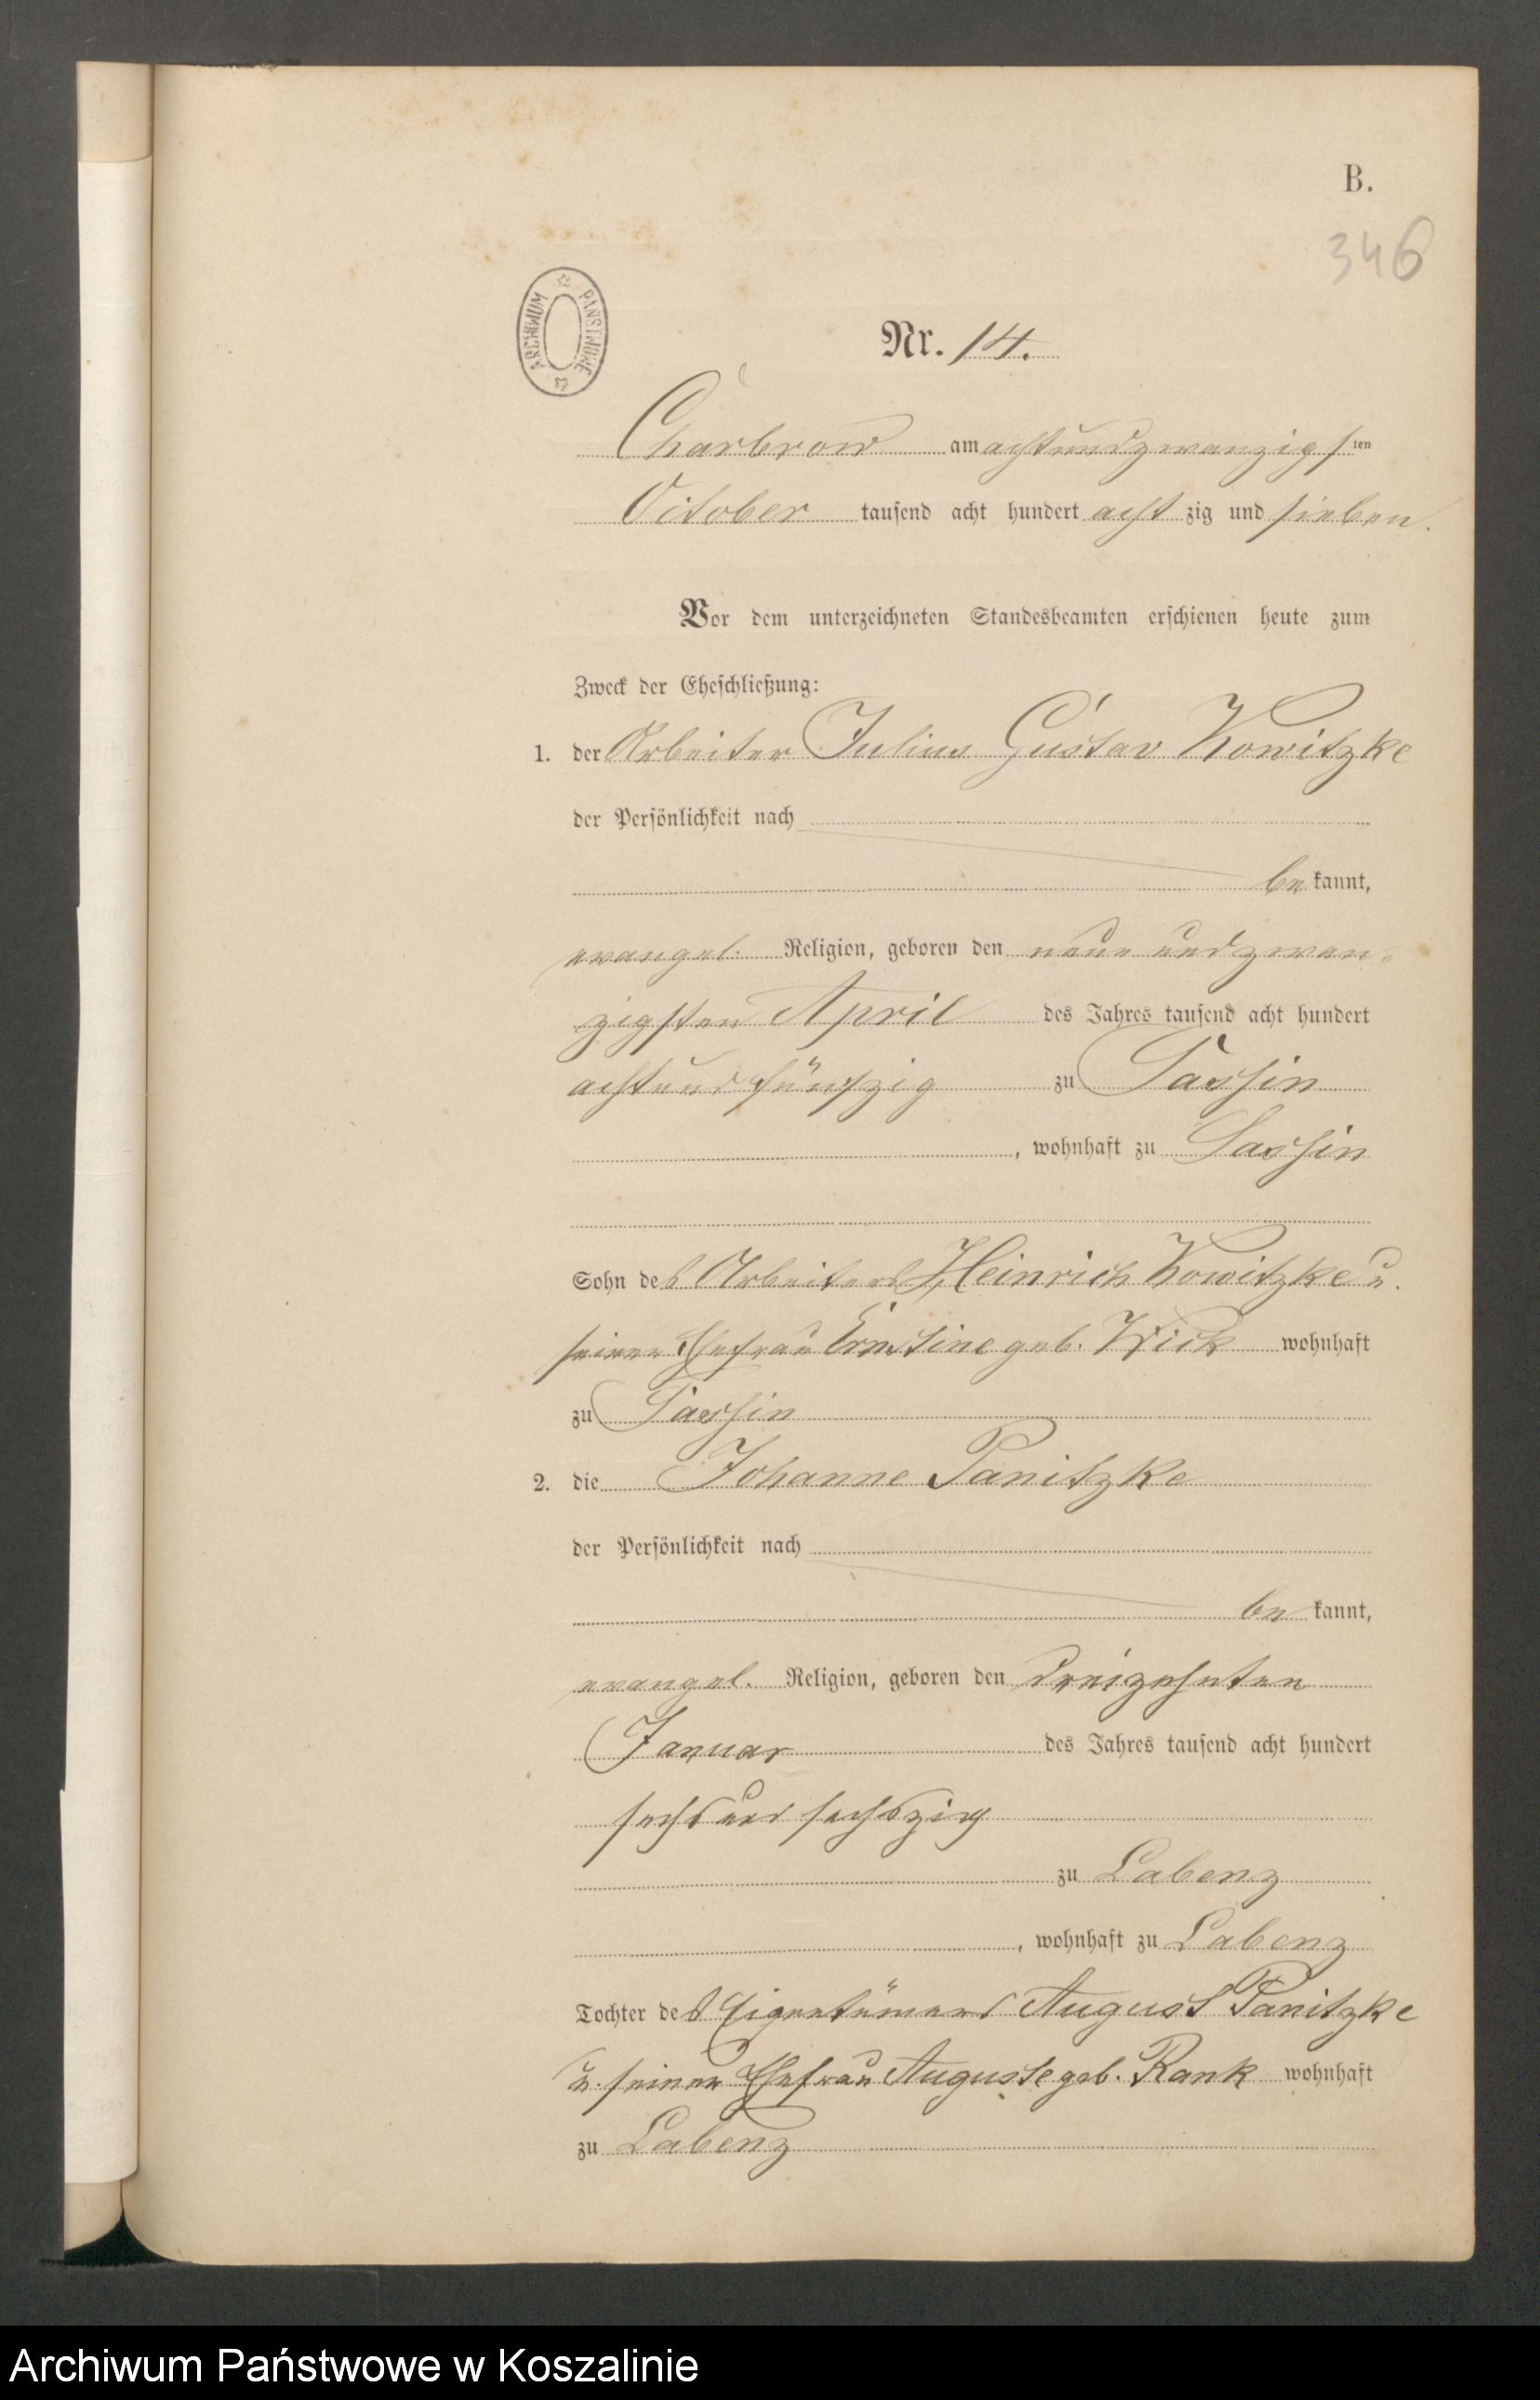 B.
346
ARCHIWUM PAŃSTWOWE
Nr. 14.
Charbrow am achtundzwanzigsten
October tausend acht hundert acht zig und sieben.
Vor dem unterzeichneten Standesbeamten erschienen heute zum
Zweck der Eheschließung:
1. der Arbeiter Julius Gustav Kowitzke
der Persönlichkeit nach
be kannt,
evangel. Religion, geboren den neun undzwan-
zigsten April des Jahres tausend acht hundert
achtundfünfzig zu Sassin
, wohnhaft zu Sassin
Sohn des Arbeiters Heinrich Kowitzke u.
seiner Ehefrau Ernstine geb. Wick wohnhaft
zu Sassin
2. die Johanne Panitzke
der Persönlichkeit nach
be kannt,
evangel. Religion, geboren den dreizehnten
Januar des Jahres tausend acht hundert
sechsund sechszig
zu Labenz
, wohnhaft zu Labenz
Tochter des Eigentümers August Panitzke
u. seiner Ehefrau Auguste geb. Rank wohnhaft
zu Labenz
Archiwum Państwowe w Koszalinie